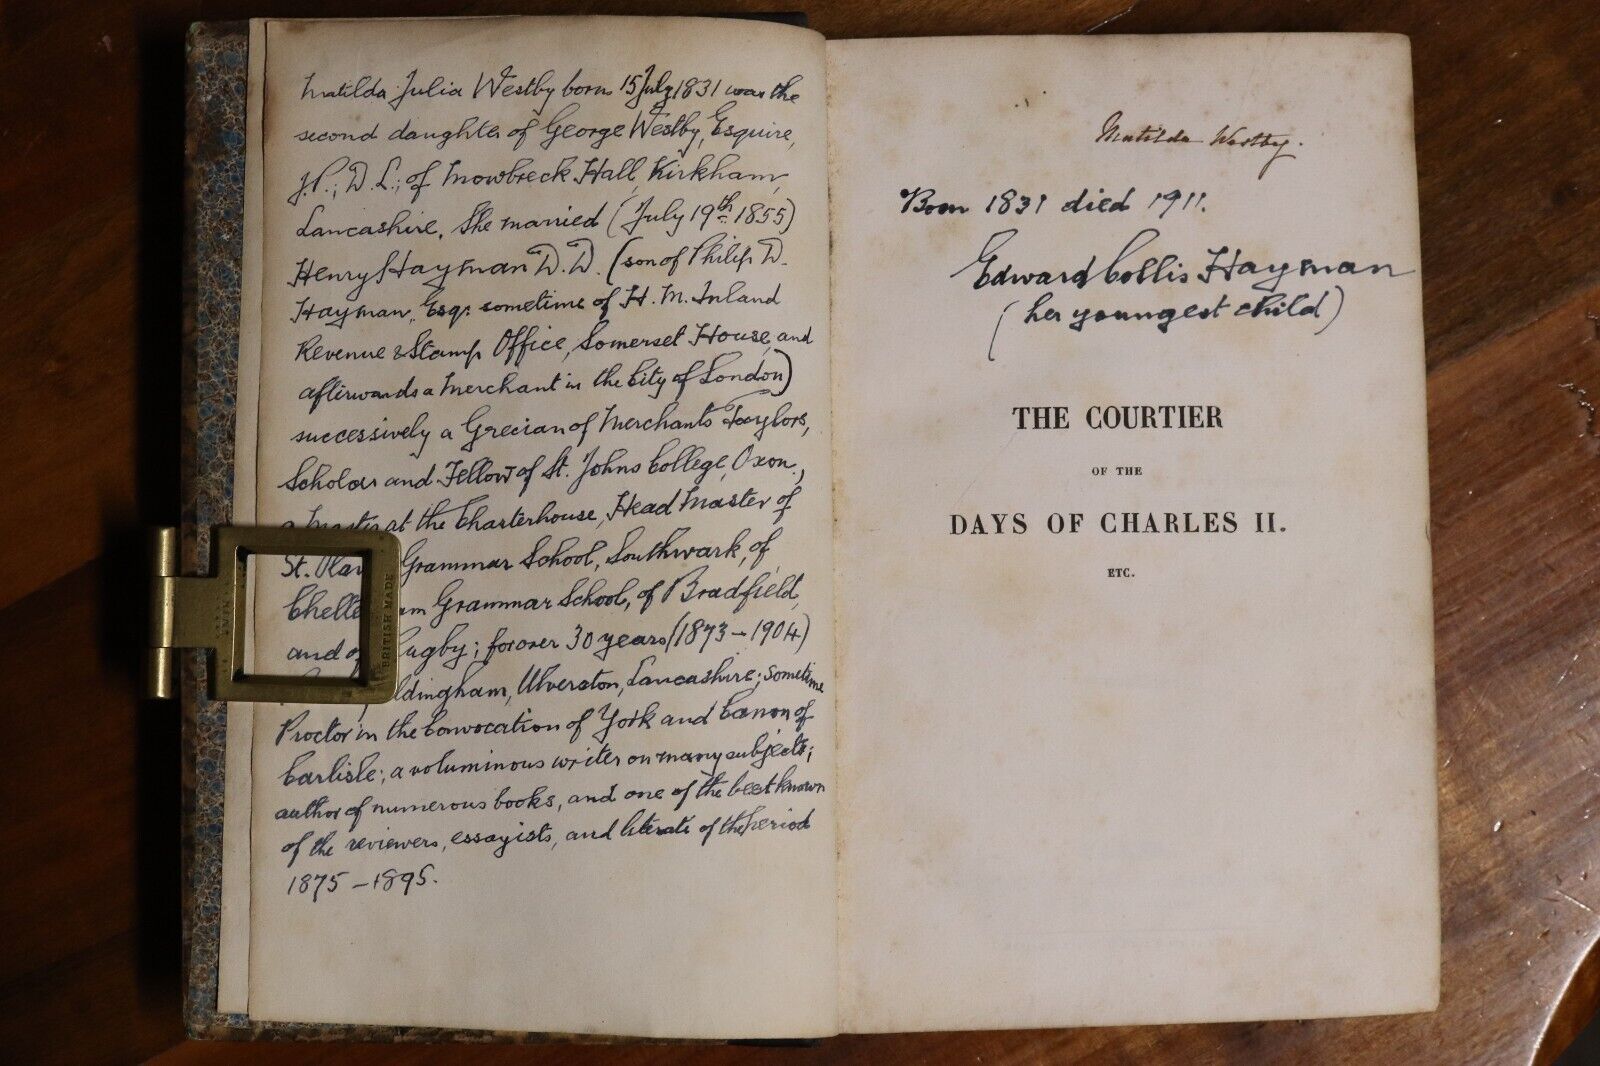 Matilda Julia Westby born 15 July 1831 was the
second daughter of George Westby, Esquire,
J.P.; D.L.; of Mowbreck Hall, Kirkham,
Lancashire. She married (July 19th 1855)
Henry Hayman D.D. (son of Philip D.
Hayman, Esqr. sometime of H.M. Inland
Revenue & Stamp Office, Somerset House, and
afterwards a Merchant in the City of London)
successively a Grecian of Merchants Taylors,
Scholar and Fellow of St. Johns College, Oxon.,
a Master at the Charterhouse, Head Master of
St. Olav Grammar School, Southwark, of
Chelte am Grammar School, of Bradfield,
and of Rugby; for over 30 years (1873–1904)
ldingham, Ulverston, Lancashire; sometime
Proctor in the Convocation of York and Canon of
Carlisle; a voluminous writer on many subjects;
author of numerous books, and one of the best known
of the reviewers, essayists, and literati of the period
1875–1895.
BRITISH MADE
Matilda Westby.
Born 1831 died 1911.
Edward Collis Hayman
(her youngest child)
THE COURTIER
OF THE
DAYS OF CHARLES II.
ETC.